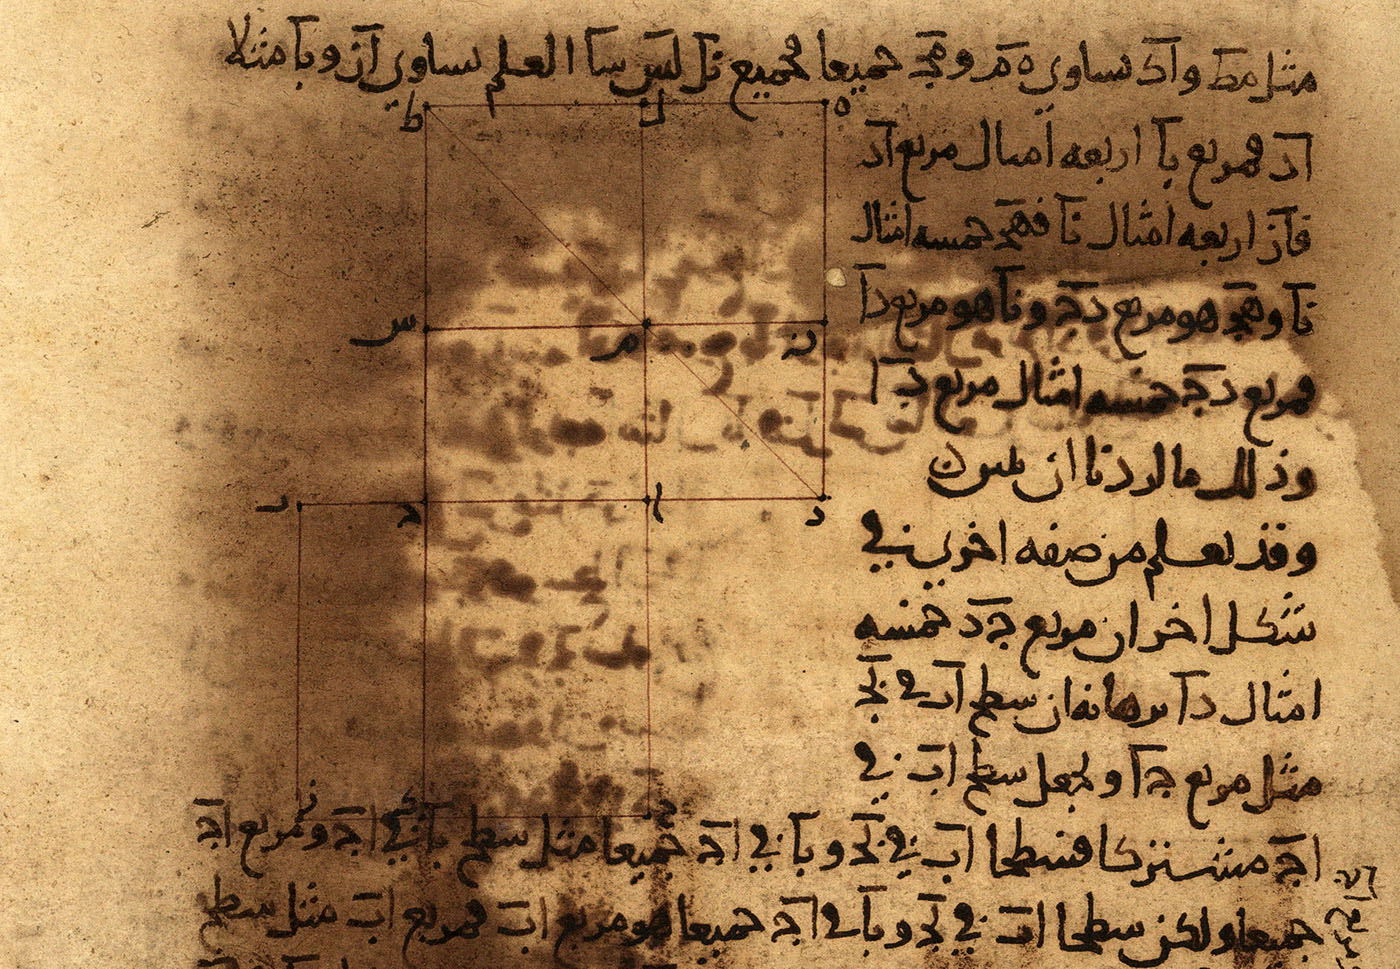 مثل مط واك ىساوي ه م وهج جميعا فجميع ىل لس سا ا العلم ىساوي از وبا مثلا
اد فمربع با اربعه امىال مربع اد
فاز اربعه امثال نا فهج خمسه امثال
نا وهج هو مربع دج ونا هو مربع دا
فمربع دج خمسه امثال مربع د ا
وذلك ما اردنا ان ىبىن
وقد ىعلم من صفه اخرى في
شكل اخر ان مربع ج د خمسه
امثال دا برهانه ان سطح اب في بج
مثل مربع جا ونجعل سطح اب في
اج مشتركا فسطحا اب في بج وبا في اج جميعا مثل سطح با في اج ومربع اج
جميعا ولكن سطحا اب في بج وبا في اج جميعا هو مربع اب فمربع اب مثل سطح
ط
ل
ه
س
م
ن
ب
ج
ا
د
ز
ك
ح